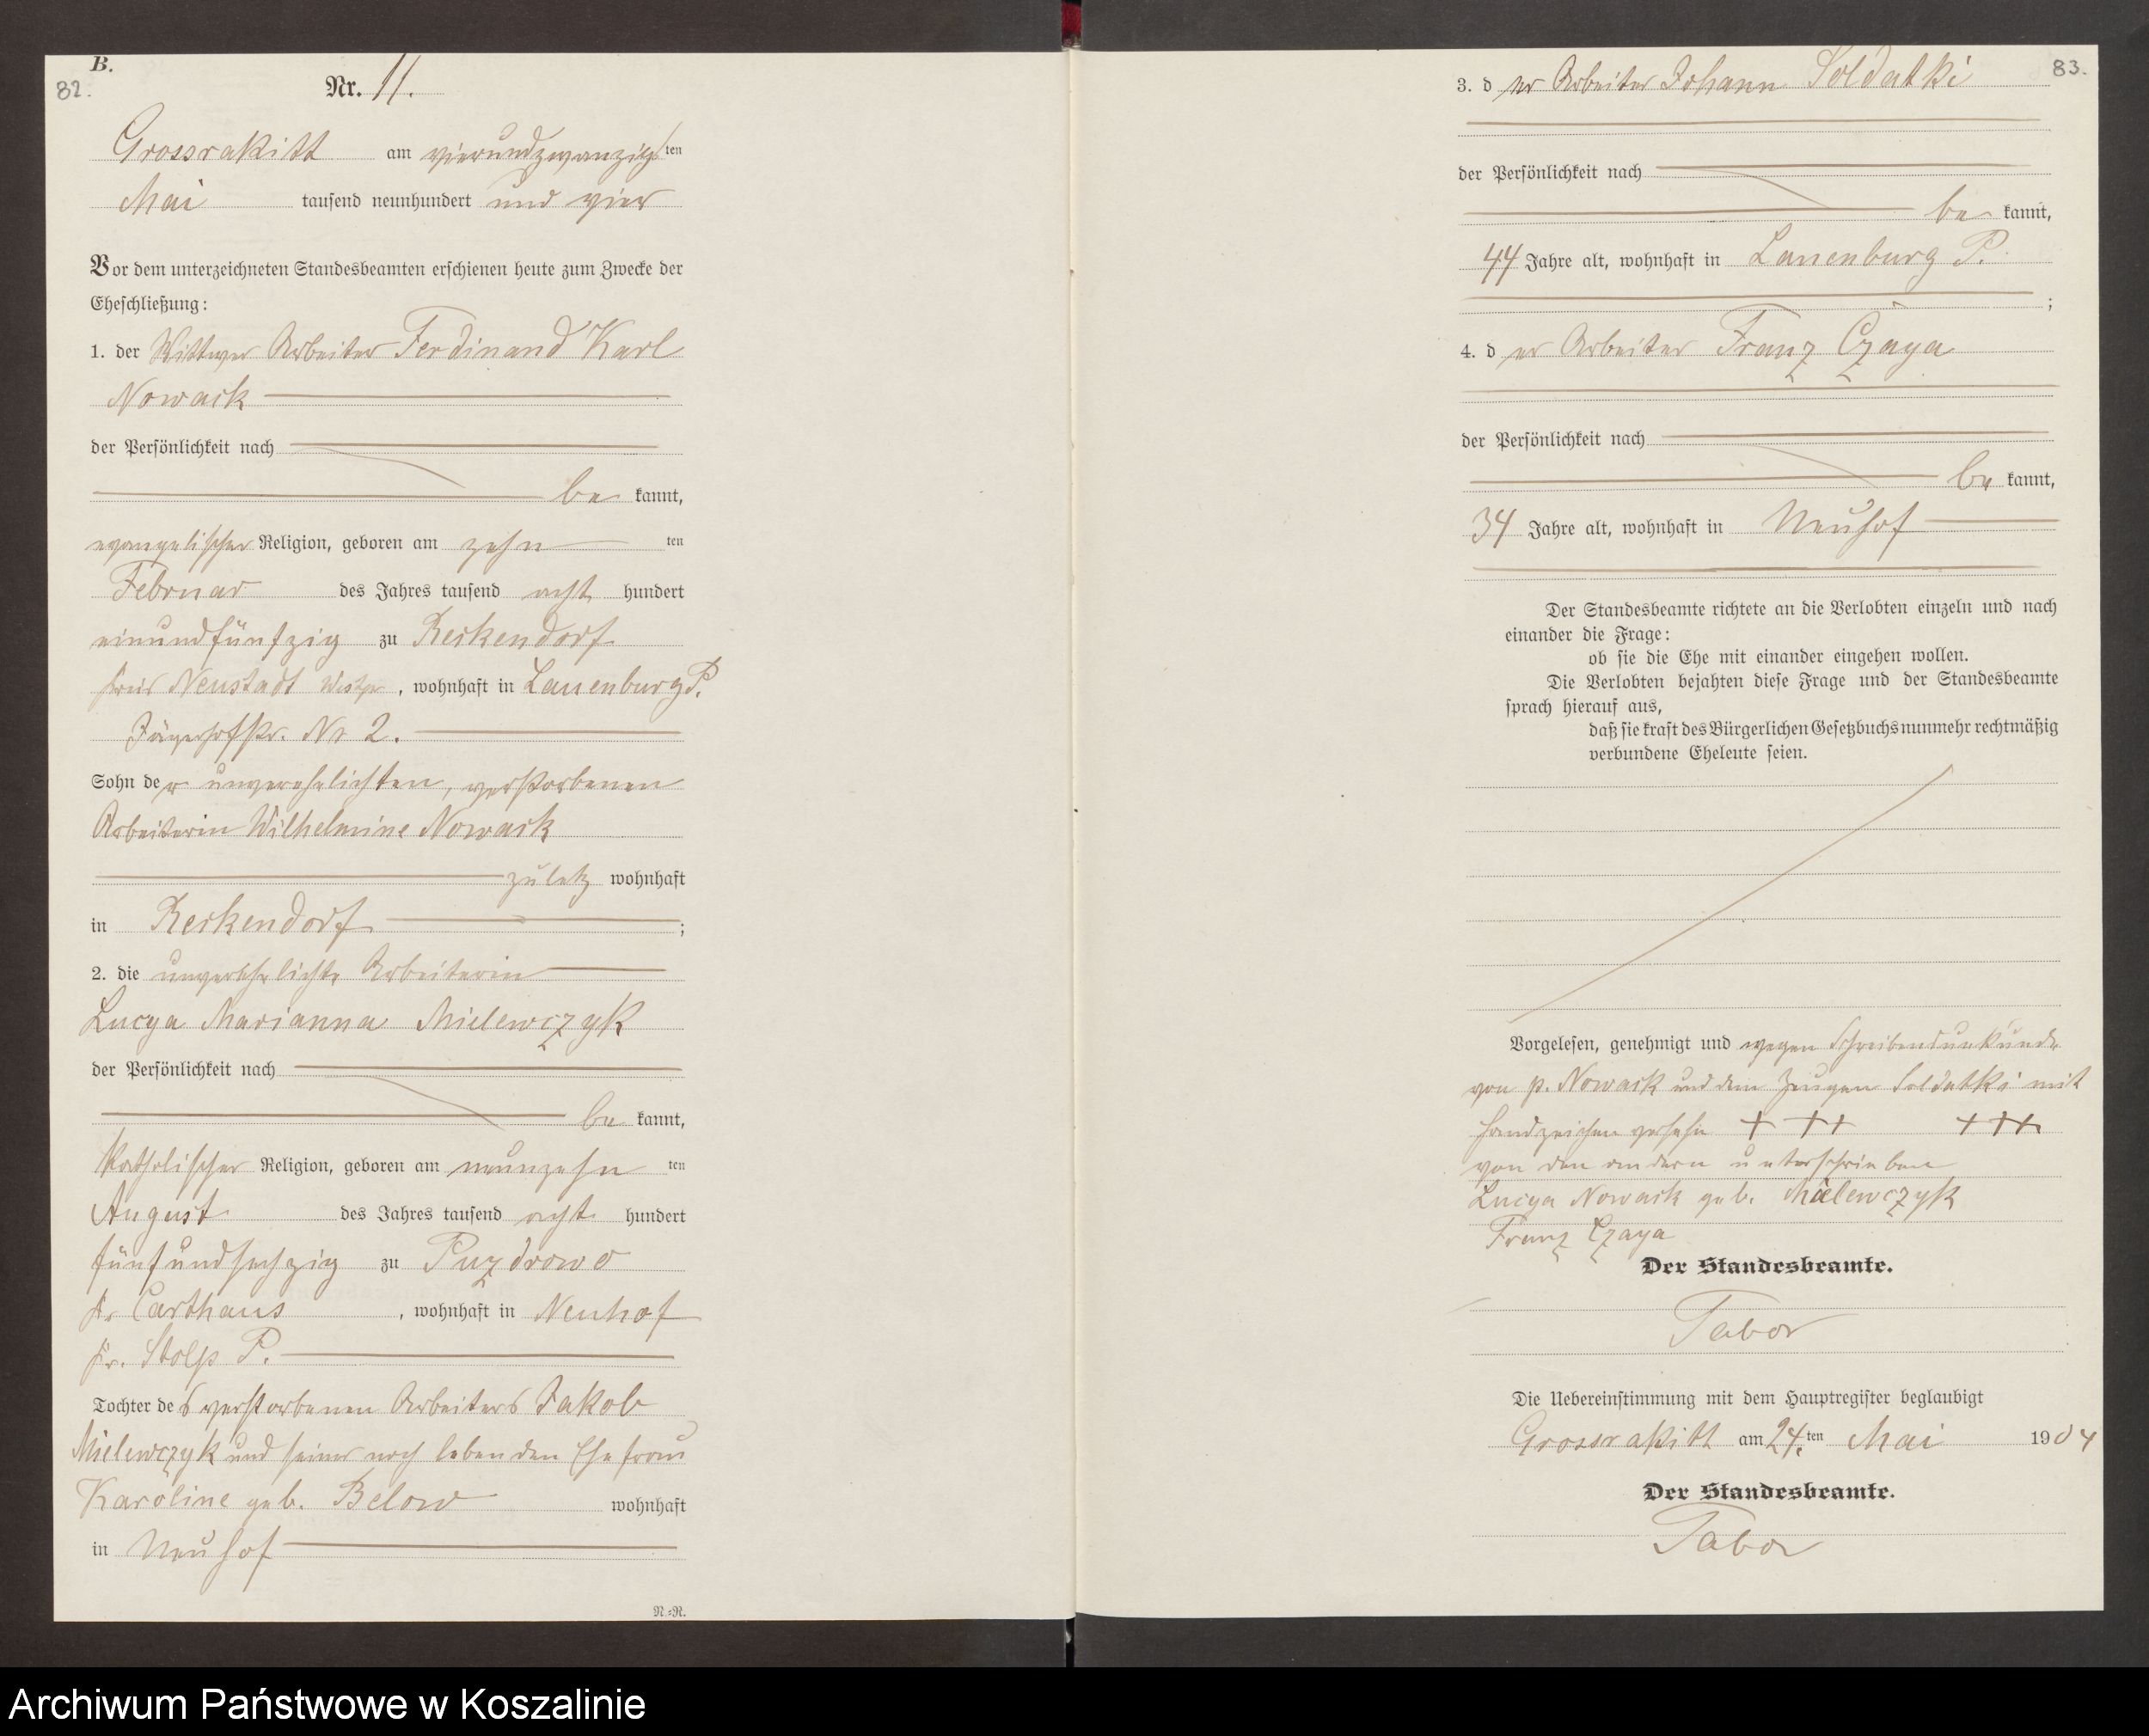 B.
82.
Nr. 11.
Grossrakitt am vierundzwanzigsten
Mai tausend neunhundert und vier
Vor dem unterzeichneten Standesbeamten erschienen heute zum Zwecke der
Eheschließung:
1. der Wittwer Arbeiter Ferdinand Karl
Nowack
der Persönlichkeit nach
be kannt,
evangelischer Religion, geboren am zehn ten
Februar des Jahres tausend acht hundert
einundfünfzig zu Reckendorf
Kreis Neustadt Westpr , wohnhaft in Lauenburg P.
Jägerhofstr. Nr 2.
Sohn der unverehelichten, verstorbenen
Arbeiterin Wilhelmine Nowack
zuletz wohnhaft
in Reckendorf ;
2. die unverehelichte Arbeiterin
Lucya Marianna Mielewczyk
der Persönlichkeit nach
be kannt,
katholischer Religion, geboren am neunzehn ten
August des Jahres tausend acht hundert
fünfundsechzig zu Puzdrowo
Kr Carthaus , wohnhaft in Neuhof
Kr. Stolp P.
Tochter des verstorbenen Arbeiters Jakob
Mielewczyk und seiner noch lebenden Ehefrau
Karoline geb. Below wohnhaft
in Neuhof
N.=N.
83.
3. der Arbeiter Johann Soldatki
der Persönlichkeit nach
be kannt,
44 Jahre alt, wohnhaft in Lauenburg P.
;
4. der Arbeiter Franz Czaya
der Persönlichkeit nach
be kannt,
34 Jahre alt, wohnhaft in Neuhof
Der Standesbeamte richtete an die Verlobten einzeln und nach
einander die Frage:
ob sie die Ehe mit einander eingehen wollen.
Die Verlobten bejahten diese Frage und der Standesbeamte
sprach hierauf aus,
daß sie kraft des Bürgerlichen Gesetzbuchs nunmehr rechtmäßig
verbundene Eheleute seien.
Vorgelesen, genehmigt und wegen Schreibensunkunde
von p. Nowack und dem Zeugen Soldatki mit
Handzeichen versehn + ++ +++
von den andern unterschrieben
Lucya Nowack geb. Mielewczyk
Franz Czaya
Der Standesbeamte.
Tabor
Die Uebereinstimmung mit dem Hauptregister beglaubigt
Grossrakitt am 24.ten Mai 1904
Der Standesbeamte.
Tabor
Archiwum Państwowe w Koszalinie